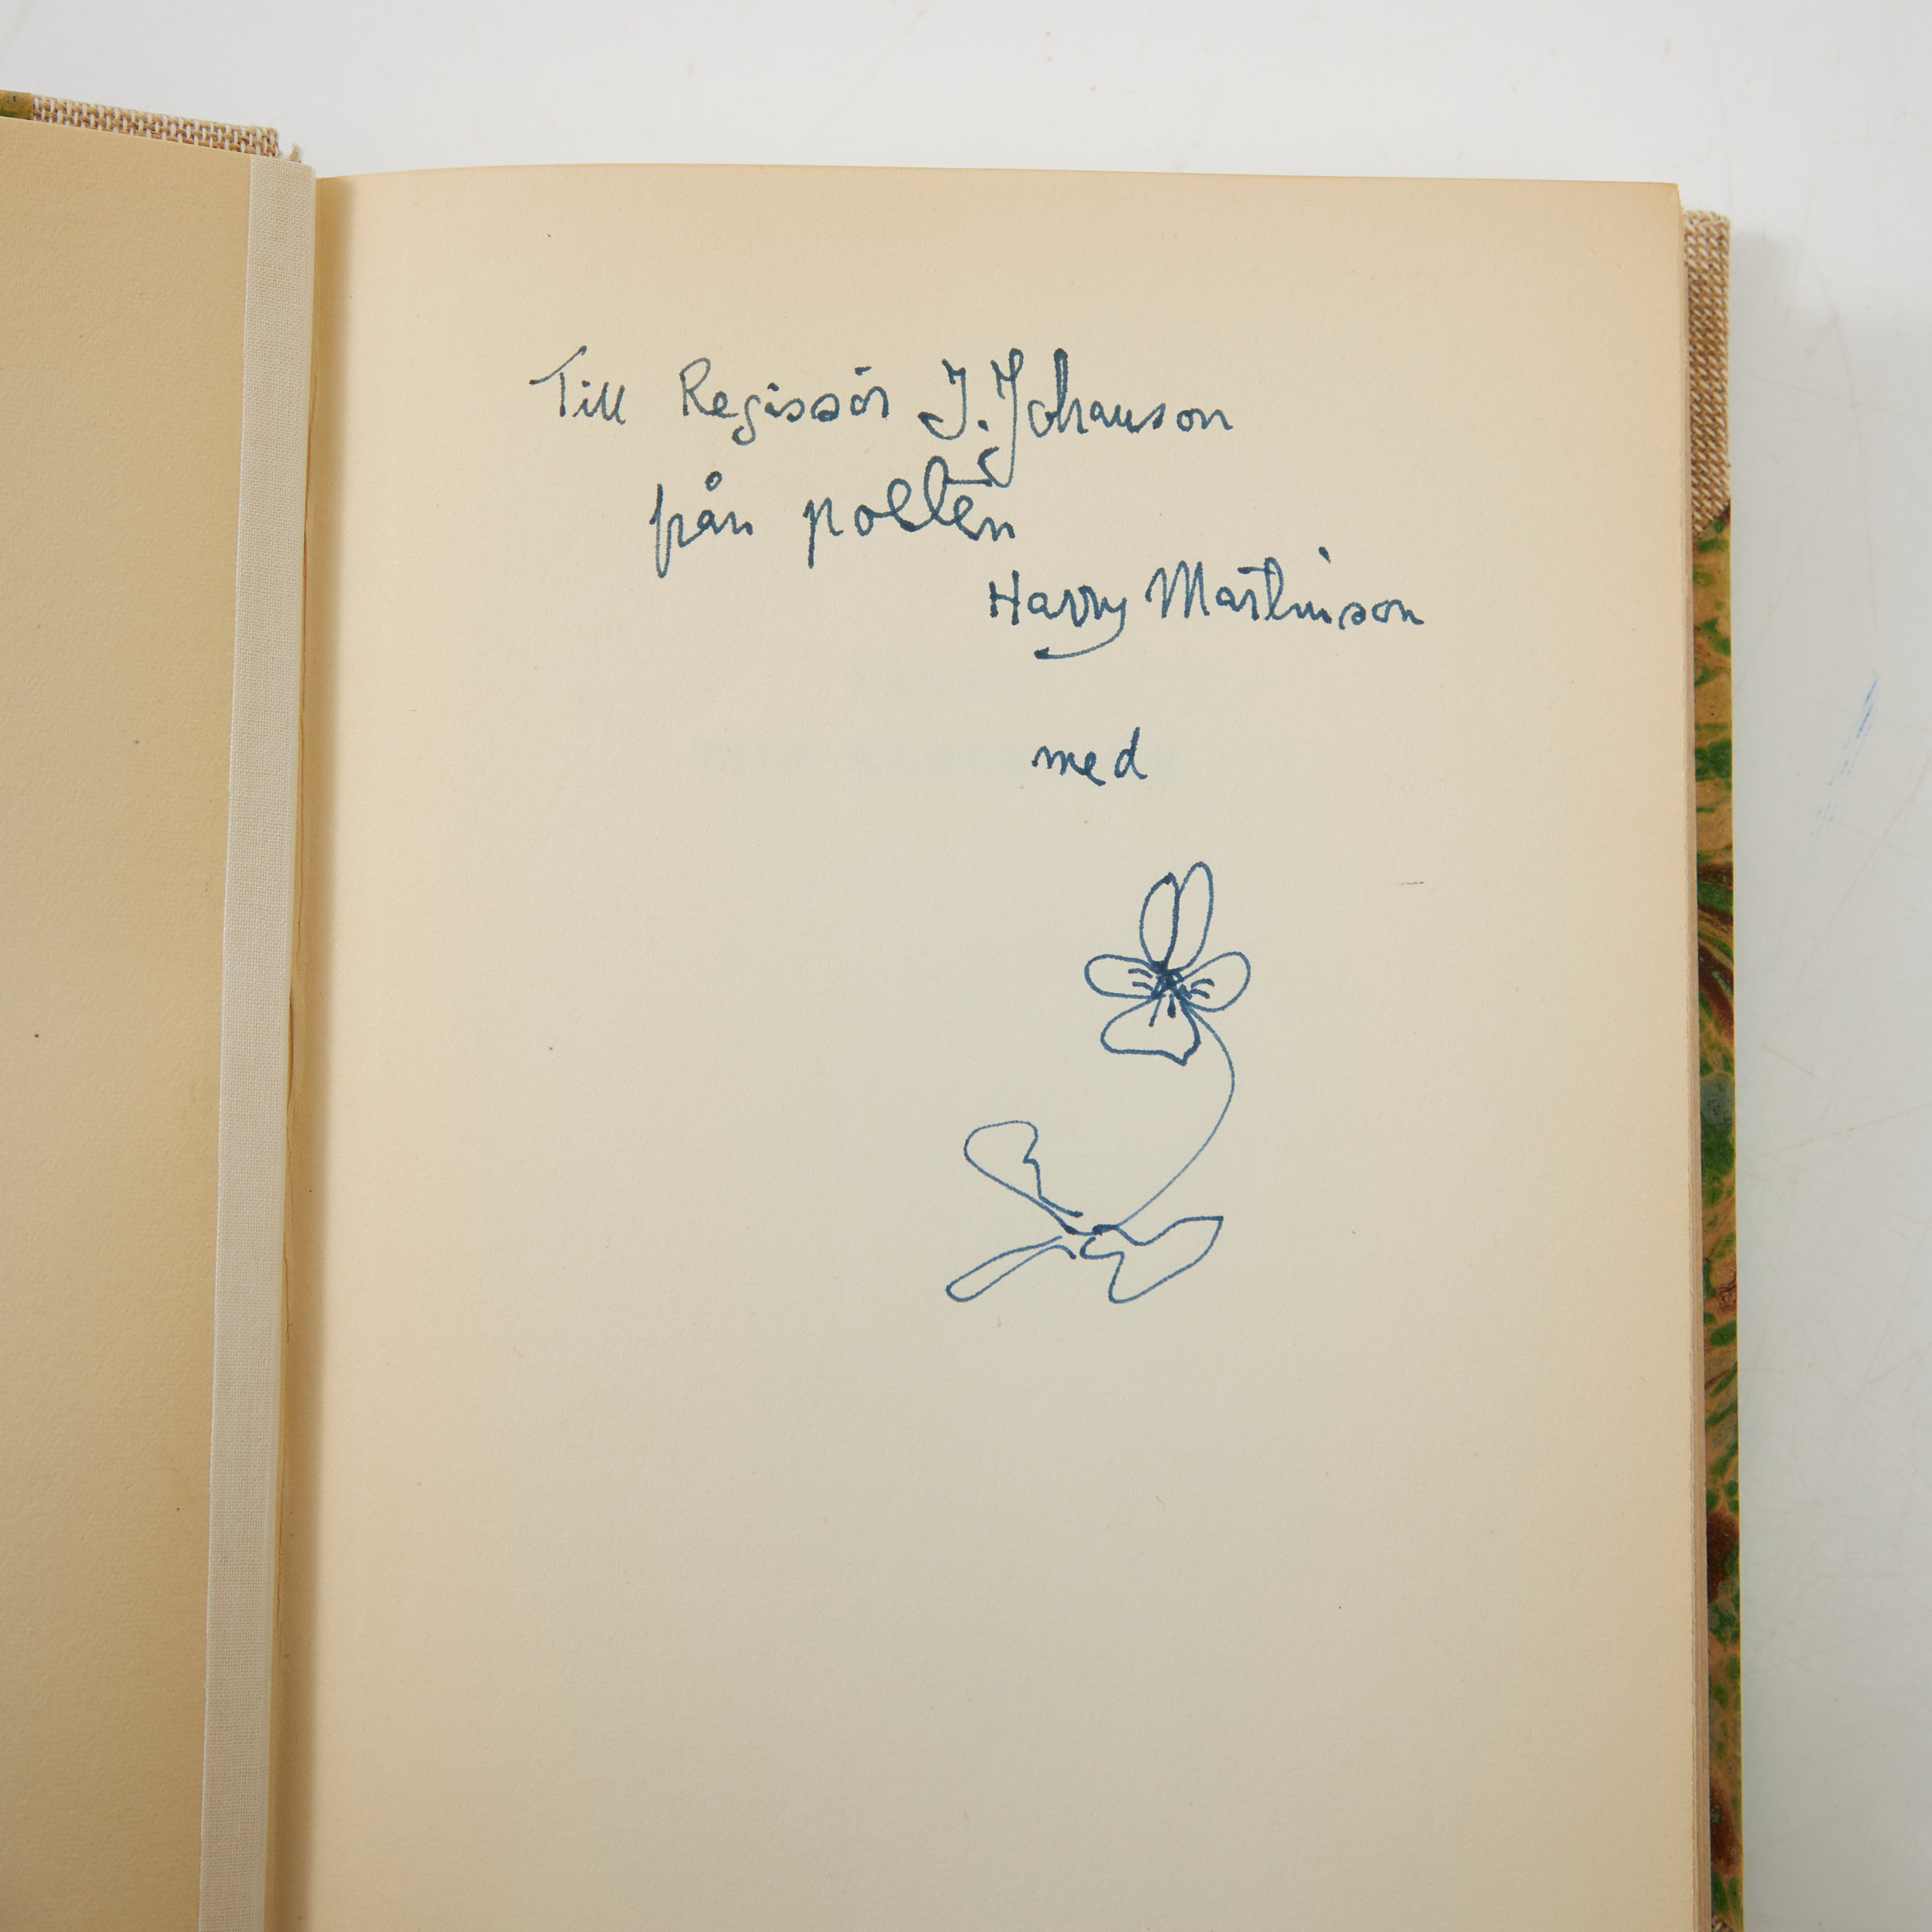 Till Regissör J. Johanson
från poeten
Harry Martinson
med